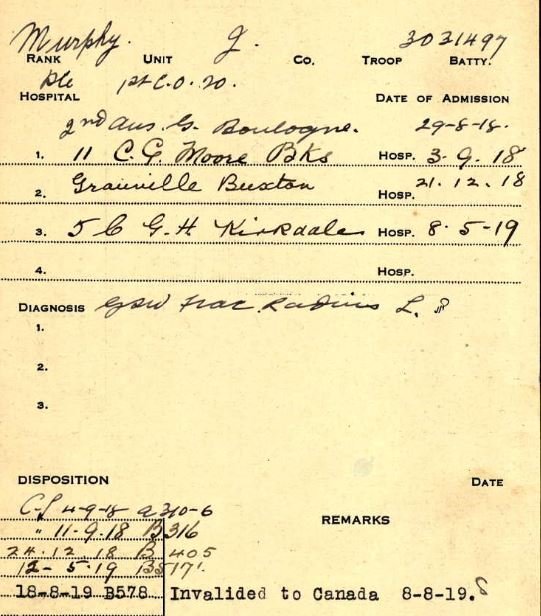 Murphy. J. 3031497
RANK UNIT CO. TROOP BATTY.
Pte 1st C.O.R.
HOSPITAL DATE OF ADMISSION
2nd Aus. G. Boulogne. 29-8-18.
1. 11 C.G. Moore Bks HOSP. 3.9.18
2. Granville Buxton HOSP. 21.12.18
3. 5 C G.H. Kirkdale HOSP. 8.5-19
4. HOSP.
DIAGNOSIS GSW Frac. Radius L.
1.
2.
3.
DISPOSITION DATE
C.L 4-9-18 a310-6
" 11-9.18 B316
REMARKS
24.12.18 B 405
12-5.19 B517
18-8-19 B578 Invalided to Canada 8-8-19.